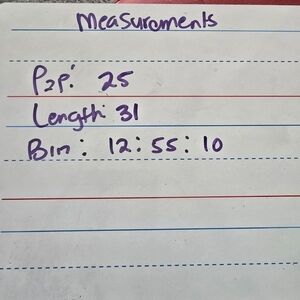 Measurements
P2P: 25
Length: 31
Bin: 12:55:10